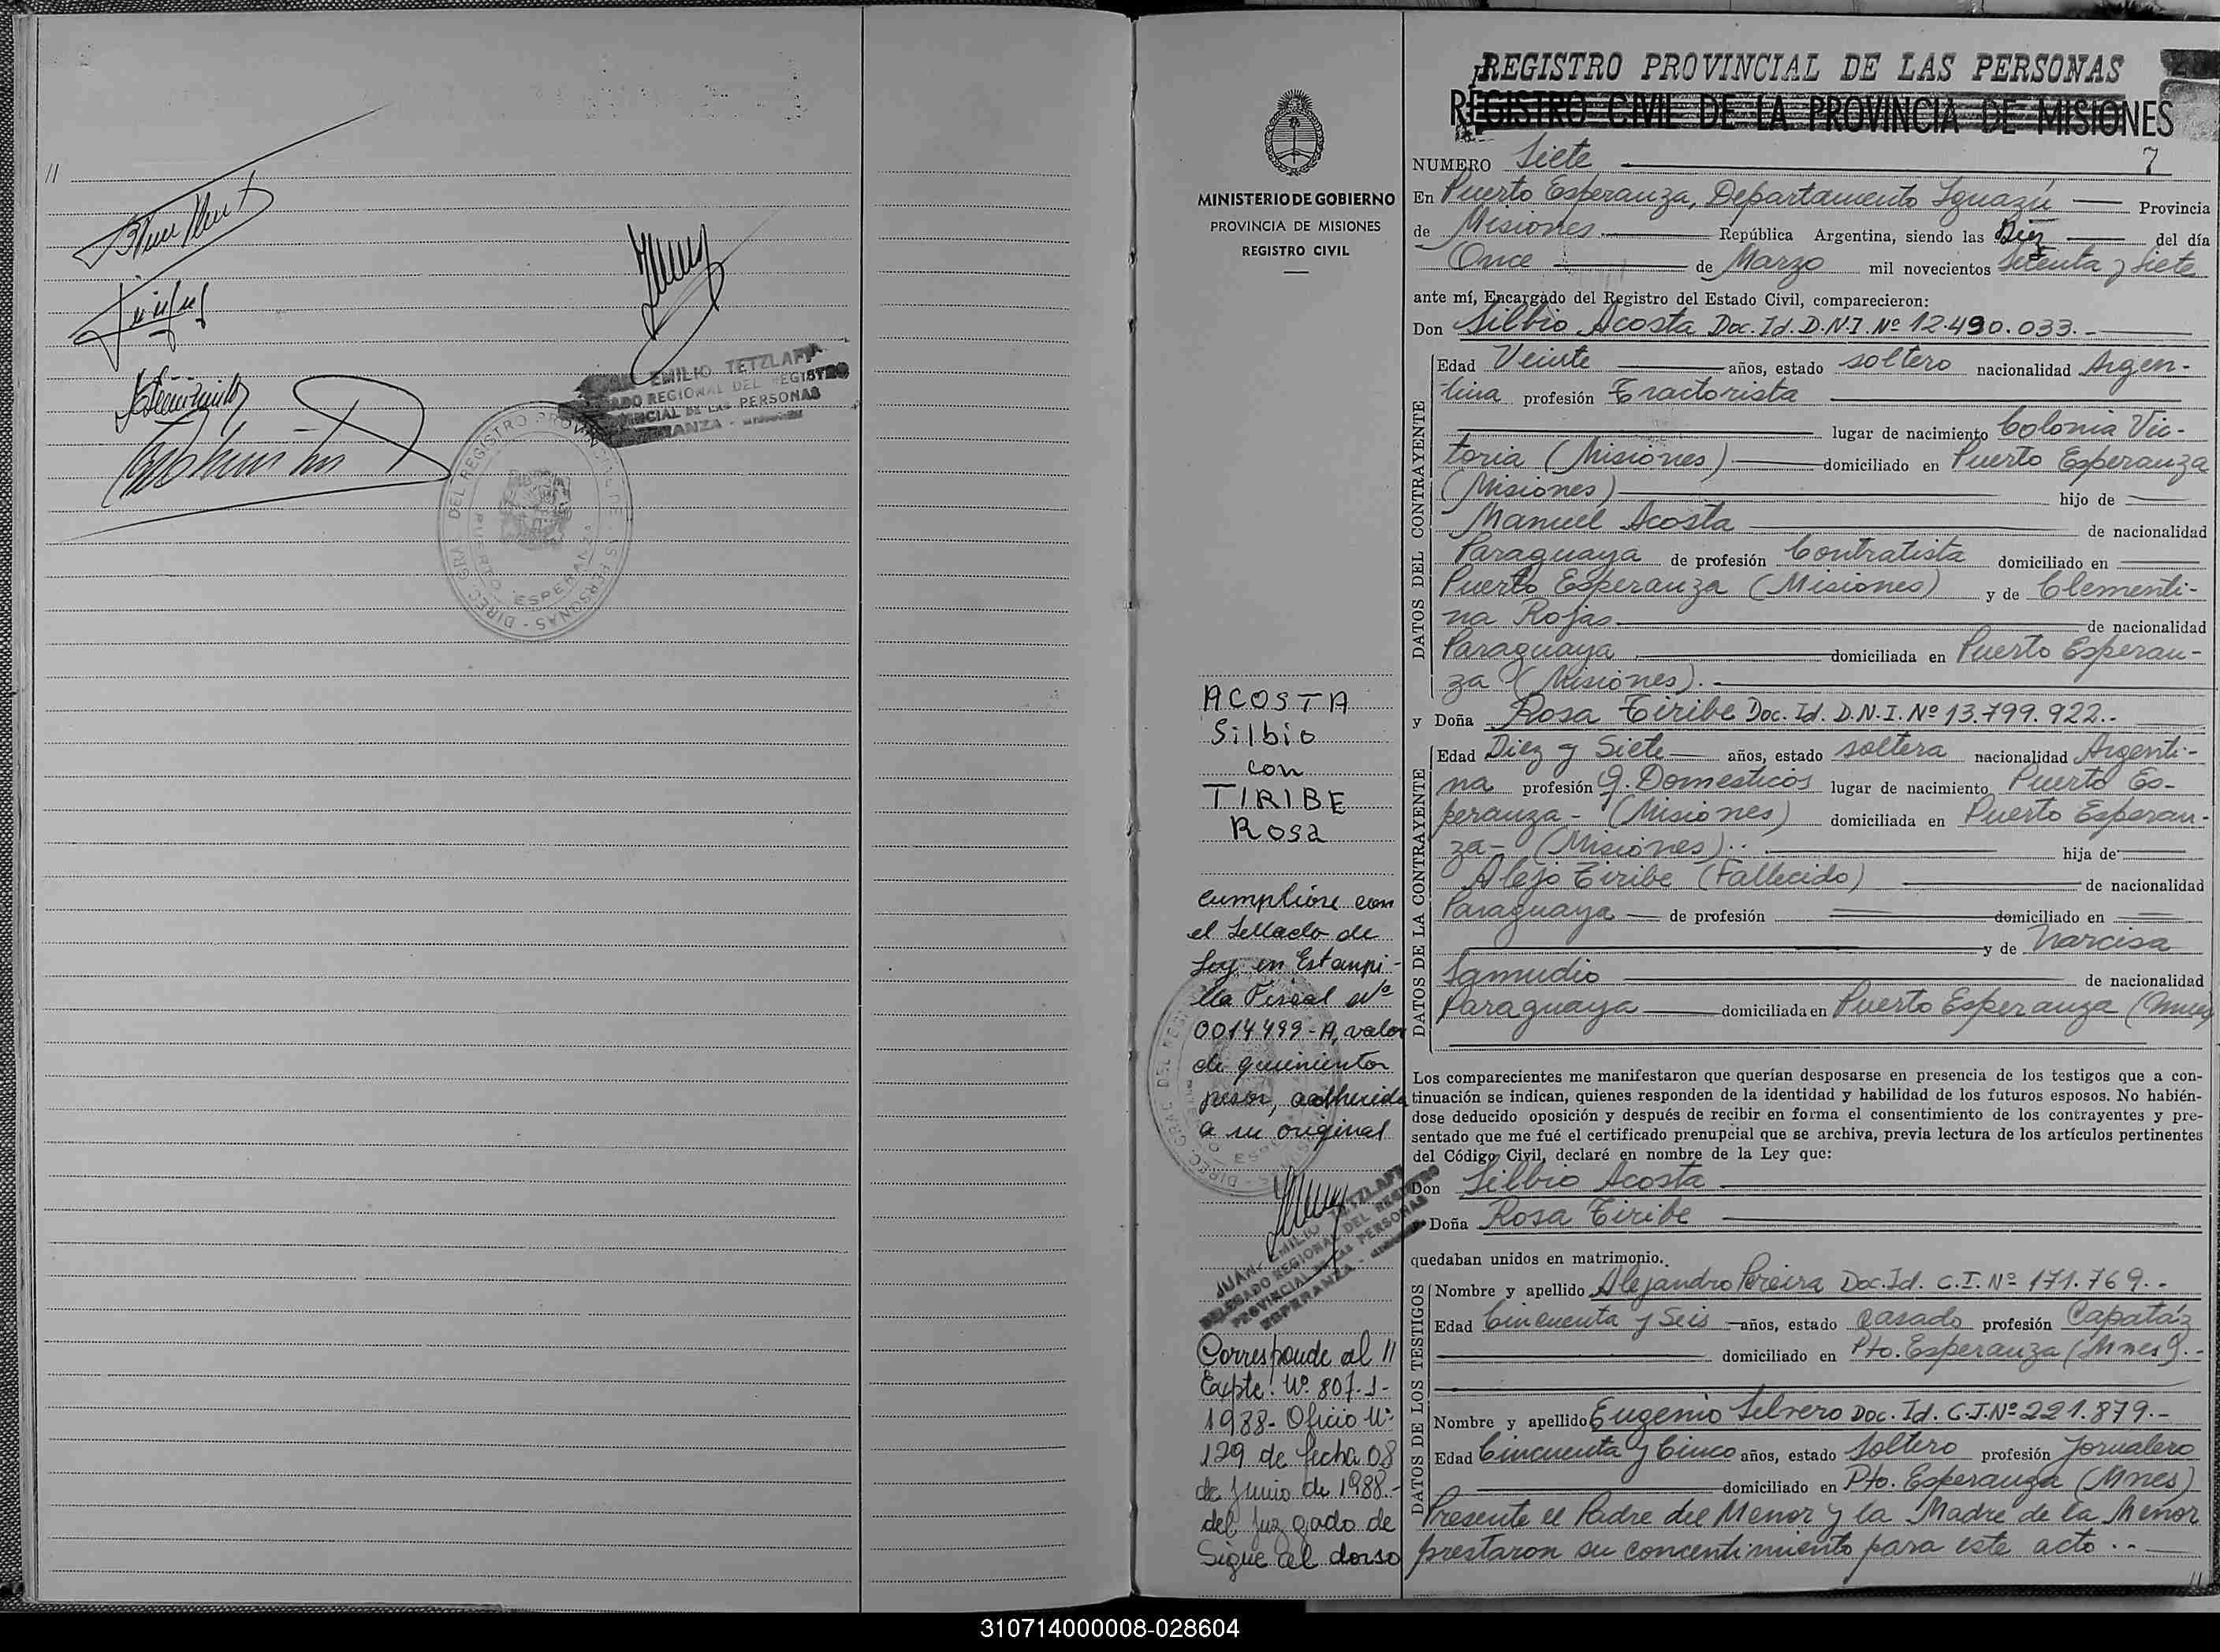 //
JUAN EMILIO TETZLAFF
DELEGADO REGIONAL DEL REGISTRO
PROVINCIAL DE LAS PERSONAS
ESPERANZA - MISIONES
DIREC. GRAL. DEL REGISTRO PROVINCIAL DE LAS PERSONAS
PUERTO ESPERANZA
MINISTERIO DE GOBIERNO
PROVINCIA DE MISIONES
REGISTRO CIVIL
ACOSTA
Silbio
con
TIRIBE
Rosa
Cumplióse con
el Sellado de
Ley en Estampi-
lla Fiscal Nº
0014499-A, valor
de quinientos
pesos, adherida
a su original
JUAN EMILIO TETZLAFF
DELEGADO REGIONAL DEL REGISTRO
PROVINCIAL DE LAS PERSONAS
ESPERANZA - MISIONES
Corresponde al //
Expte. Nº 807-J-
1988- Oficio Nº
129 de fecha 08
de Junio de 1988.-
del Juzgado de
Sigue al dorso
REGISTRO PROVINCIAL DE LAS PERSONAS
REGISTRO CIVIL DE LA PROVINCIA DE MISIONES
NUMERO Siete 7
En Puerto Esperanza, Departamento Iguazú Provincia
de Misiones República Argentina, siendo las Diez del día
Once de Marzo mil novecientos Setenta y Siete
ante mí, Encargado del Registro del Estado Civil, comparecieron:
Don Silbio Acosta Doc. Id. D.N.I. Nº 12.490.033.-
DATOS DEL CONTRAYENTE
Edad Veinte años, estado soltero nacionalidad Argen-
tina profesión Tractorista
lugar de nacimiento Colonia Vic-
toria (Misiones) domiciliado en Puerto Esperanza
(Misiones) hijo de
Manuel Acosta de nacionalidad
Paraguaya de profesión Contratista domiciliado en
Puerto Esperanza (Misiones) y de Clementi-
na Rojas de nacionalidad
Paraguaya domiciliada en Puerto Esperan-
za (Misiones).-
y Doña Rosa Tiribe Doc. Id. D.N.I. Nº 13.799.922.-
DATOS DE LA CONTRAYENTE
Edad Diez y Siete años, estado soltera nacionalidad Argenti-
na profesión Q. Domesticos lugar de nacimiento Puerto Es-
peranza - (Misiones) domiciliada en Puerto Esperan-
za - (Misiones).. hija de
Alejo Tiribe (Fallecido) de nacionalidad
Paraguaya de profesión domiciliado en
y de Narcisa
Samudio de nacionalidad
Paraguaya domiciliada en Puerto Esperanza (Mnes)
Los comparecientes me manifestaron que querían desposarse en presencia de los testigos que a con-
tinuación se indican, quienes responden de la identidad y habilidad de los futuros esposos. No habién-
dose deducido oposición y después de recibir en forma el consentimiento de los contrayentes y pre-
sentado que me fué el certificado prenupcial que se archiva, previa lectura de los artículos pertinentes
del Código Civil, declaré en nombre de la Ley que:
Don Silbio Acosta
Doña Rosa Tiribe
quedaban unidos en matrimonio.
DATOS DE LOS TESTIGOS
Nombre y apellido Alejandro Pereira Doc. Id. C.I. Nº 171.769.-
Edad Cincuenta y Seis años, estado Casado profesión Capatáz
domiciliado en Pto. Esperanza (Mnes).-
Nombre y apellido Eugenio Silvero Doc. Id. C.I. Nº 221.879.-
Edad Cincuenta y Cinco años, estado Soltero profesión Jornalero
domiciliado en Pto. Esperanza (Mnes)
Presente el Padre del Menor y la Madre de la Menor
prestaron su concentimiento para este acto..
//
310714000008-028604